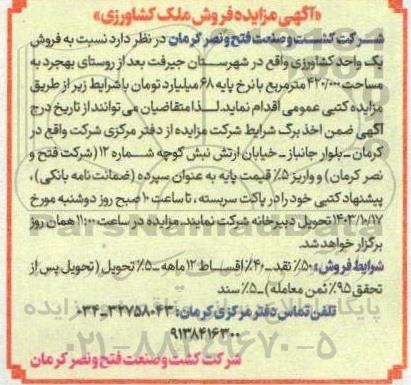 «آگهی مزایده فروش ملک کشاورزی»
شرکت کشت و صنعت فتح و نصر کرمان در نظر دارد نسبت به فروش
یک واحد کشاورزی واقع در شهرستان جیرفت بعد از روستای بهجرد به
مساحت ۴۲۰/۰۰۰ مترمربع با نرخ پایه ۶۸ میلیارد تومان با شرایط زیر از طریق
مزایده کتبی عمومی اقدام نماید. لذا متقاضیان می توانند از تاریخ درج
آگهی ضمن اخذ برگ شرایط شرکت مزایده از دفتر مرکزی شرکت واقع در
کرمان -بلوار جانباز - خیابان ارتش نبش کوچه شماره ۱۲ (شرکت فتح و
نصر کرمان) و واریز ۵٪ قیمت پایه به عنوان سپرده (ضمانت نامه بانکی)،
پیشنهاد کتبی خود را در پاکت سربسته ، تا ساعت ۱۰ صبح روز دوشنبه مورخ
۱۴۰۳/۱۰/۱۷ تحویل دبیرخانه شرکت نمایند. مزایده در ساعت ۱۱:۰۰ همان روز
برگزار خواهد شد.
شرایط فروش: ۵۰٪ نقد-۴۰٪ اقساط ۱۲ ماهه -۵٪ تحویل (تحویل پس از
تحقق ۹۵٪ ثمن معامله) -۵٪ سند
تلفن تماس دفتر مرکزی کرمان: ۳۲۷۵۸۰۴۳-۰۳۴
۹۱۳۸۴۱۶۳۰۰
شرکت کشت و صنعت فتح و نصر کرمان